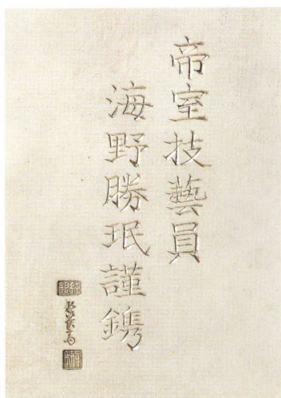 帝室技藝員
海野勝珉謹鐫